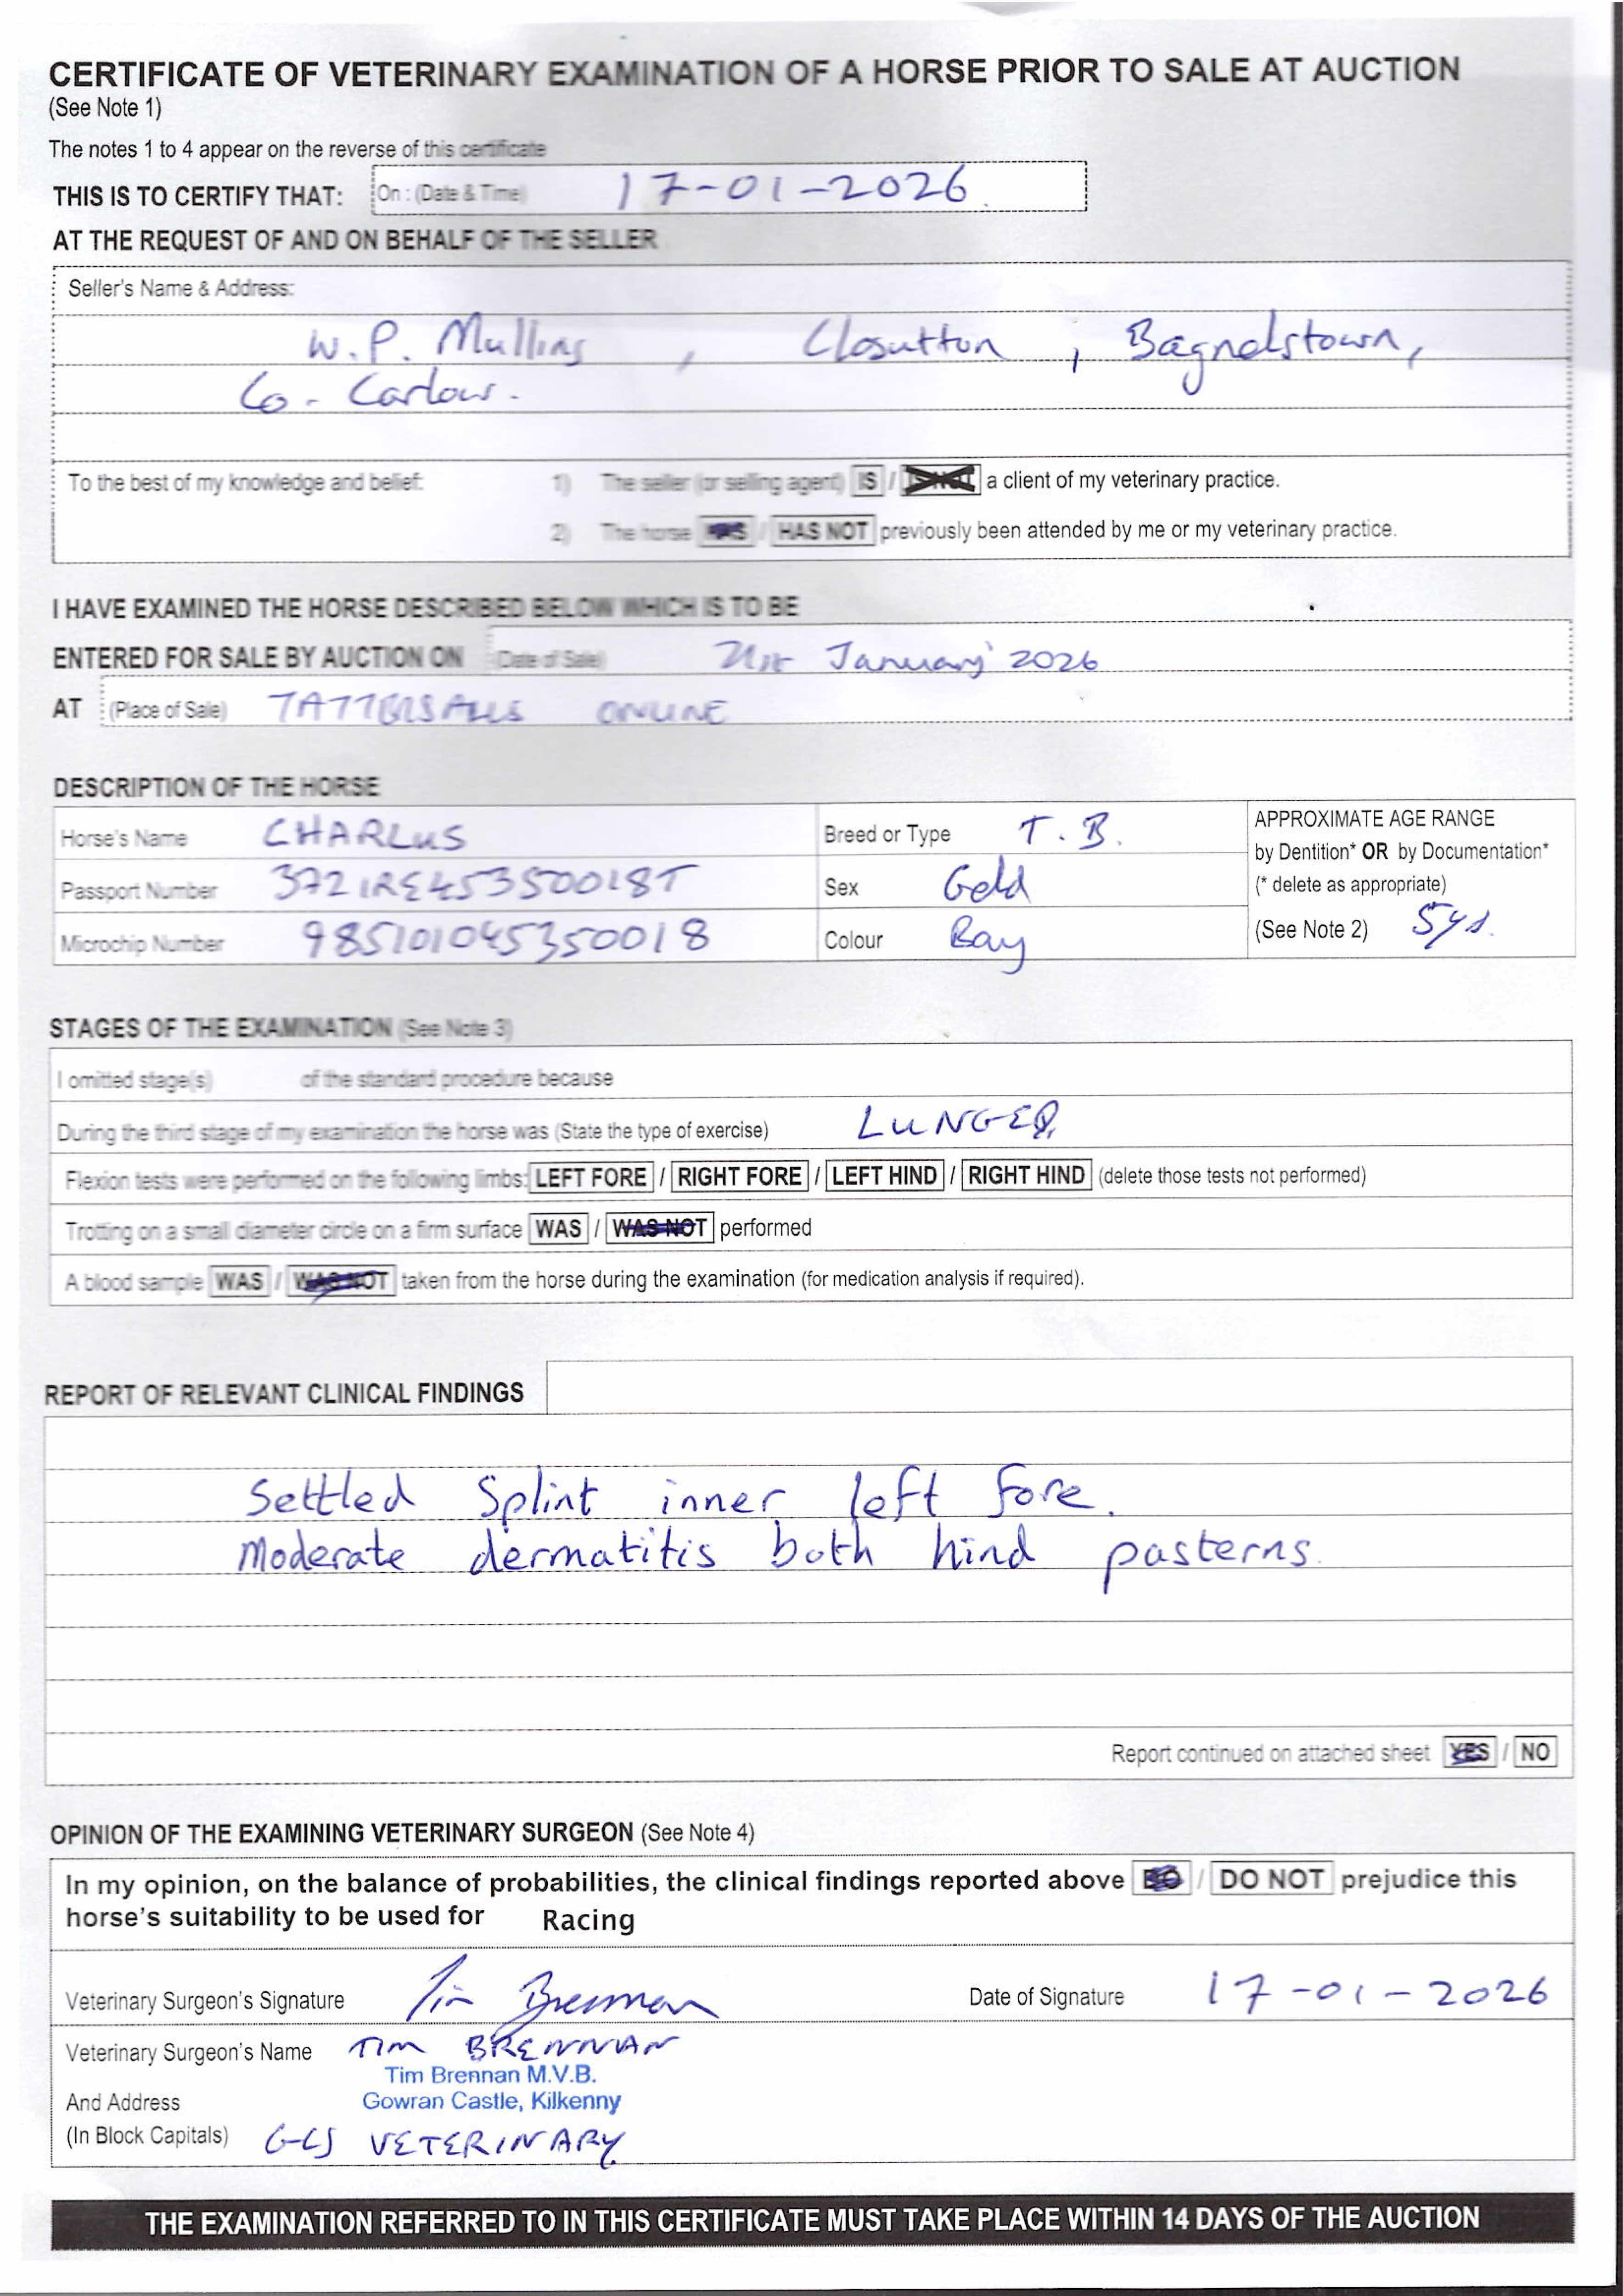 CERTIFICATE OF VETERINARY EXAMINATION OF A HORSE PRIOR TO SALE AT AUCTION
(See Note 1)
The notes 1 to 4 appear on the reverse of this certificate
THIS IS TO CERTIFY THAT: On : (Date & Time) 17-01-2026
AT THE REQUEST OF AND ON BEHALF OF THE SELLER
Seller's Name & Address:
W.P. Mullins, Closutton, Bagnelstown,
Co. Carlow.
To the best of my knowledge and belief: 1) The seller (or selling agent) IS / IS NOT a client of my veterinary practice.
2) The horse HAS / HAS NOT previously been attended by me or my veterinary practice.
I HAVE EXAMINED THE HORSE DESCRIBED BELOW WHICH IS TO BE
ENTERED FOR SALE BY AUCTION ON (Date of Sale) 21st January 2026
AT (Place of Sale) TATTERSALLS ONLINE
DESCRIPTION OF THE HORSE
Horse's Name CHARLUS Breed or Type T.B.
Passport Number 372IRE45350018T Sex Geld
Microchip Number 985101045350018 Colour Bay
APPROXIMATE AGE RANGE
by Dentition* OR by Documentation*
(* delete as appropriate)
(See Note 2) 5ys.
STAGES OF THE EXAMINATION (See Note 3)
I omitted stage(s) of the standard procedure because
During the third stage of my examination the horse was (State the type of exercise) LUNGED
Flexion tests were performed on the following limbs: LEFT FORE / RIGHT FORE / LEFT HIND / RIGHT HIND (delete those tests not performed)
Trotting on a small diameter circle on a firm surface WAS / WAS NOT performed
A blood sample WAS / WAS NOT taken from the horse during the examination (for medication analysis if required).
REPORT OF RELEVANT CLINICAL FINDINGS
Settled Splint inner left fore.
Moderate dermatitis both hind pasterns.
Report continued on attached sheet YES / NO
OPINION OF THE EXAMINING VETERINARY SURGEON (See Note 4)
In my opinion, on the balance of probabilities, the clinical findings reported above DO / DO NOT prejudice this
horse's suitability to be used for Racing
Veterinary Surgeon's Signature Tim Brennan Date of Signature 17-01-2026
Veterinary Surgeon's Name TIM BRENNAN
Tim Brennan M.V.B.
And Address Gowran Castle, Kilkenny
(In Block Capitals) VETERINARY
THE EXAMINATION REFERRED TO IN THIS CERTIFICATE MUST TAKE PLACE WITHIN 14 DAYS OF THE AUCTION